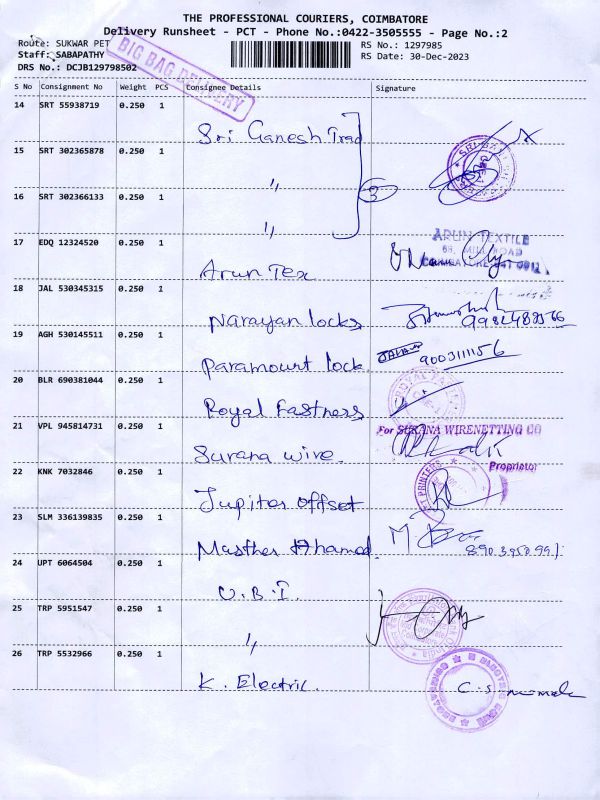 THE PROFESSIONAL COURIERS, COIMBATORE
Delivery Runsheet - PCT - Phone No.:0422-3505555 - Page No.:2
Route: SUKWAR PET
RS No.: 1297985
Staff: SABAPATHY
RS Date: 30-Dec-2023
DRS No.: DCJB129798502
BIG BAG DELIVERY
S No Consignment No Weight PCS Consignee Details Signature
14 SRT 55938719 0.250 1 Sri Ganesh Trad
15 SRT 302365878 0.250 1 〃
3
16 SRT 302366133 0.250 1 〃
17 EDQ 12324520 0.250 1 Arun Tex
ARUN TEXTILE
18 JAL 530345315 0.250 1 Narayan locks
19 AGH 530145511 0.250 1 Paramount lock
9003111156
20 BLR 690381044 0.250 1 Royal Fastners
21 VPL 945814731 0.250 1 Surana wire.
For SURANA WIRENETTING CO
Proprietor
22 KNK 7032846 0.250 1 Jupiter offset
23 SLM 336139835 0.250 1 Masther Ahamed
24 UPT 6064504 0.250 1 U.B.I.
25 TRP 5951547 0.250 1 〃
26 TRP 5532966 0.250 1 K. Electric.